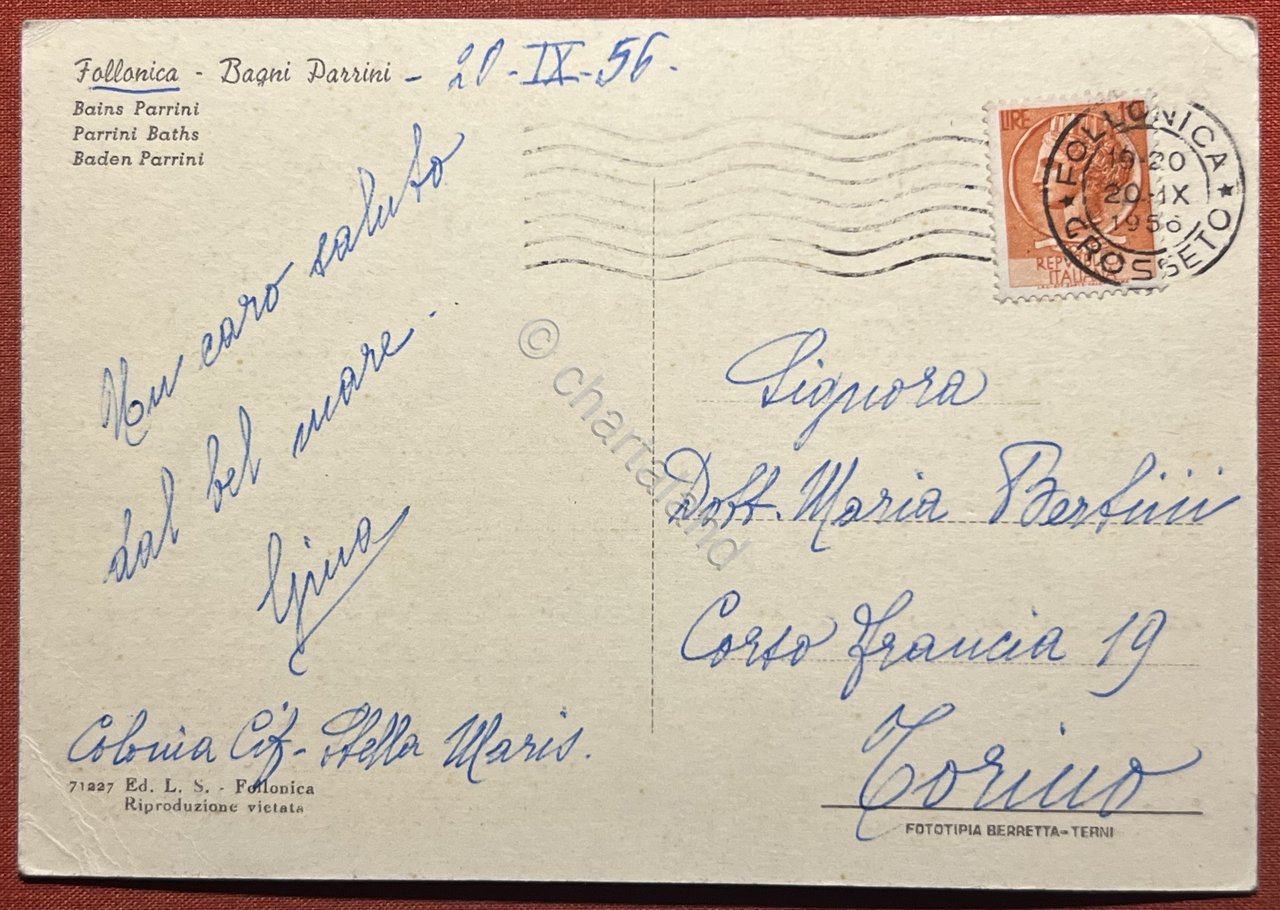 Follonica - Bagni Parrini - 20-IX-56.
Bains Parrini
Parrini Baths
Baden Parrini
Un caro saluto
dal bel mare.
Gina
Colonia Cif- Stella Maris.
71227 Ed. L. S. - Follonica
Riproduzione vietata
LIRE
REPVBBLICA
ITALIANA
FOLLONICA
19-20
20-IX
1956
GROSSETO
Signora
Dott. Maria Bertini
Corso Francia 19
Torino
FOTOTIPIA BERRETTA-TERNI
© chartaland